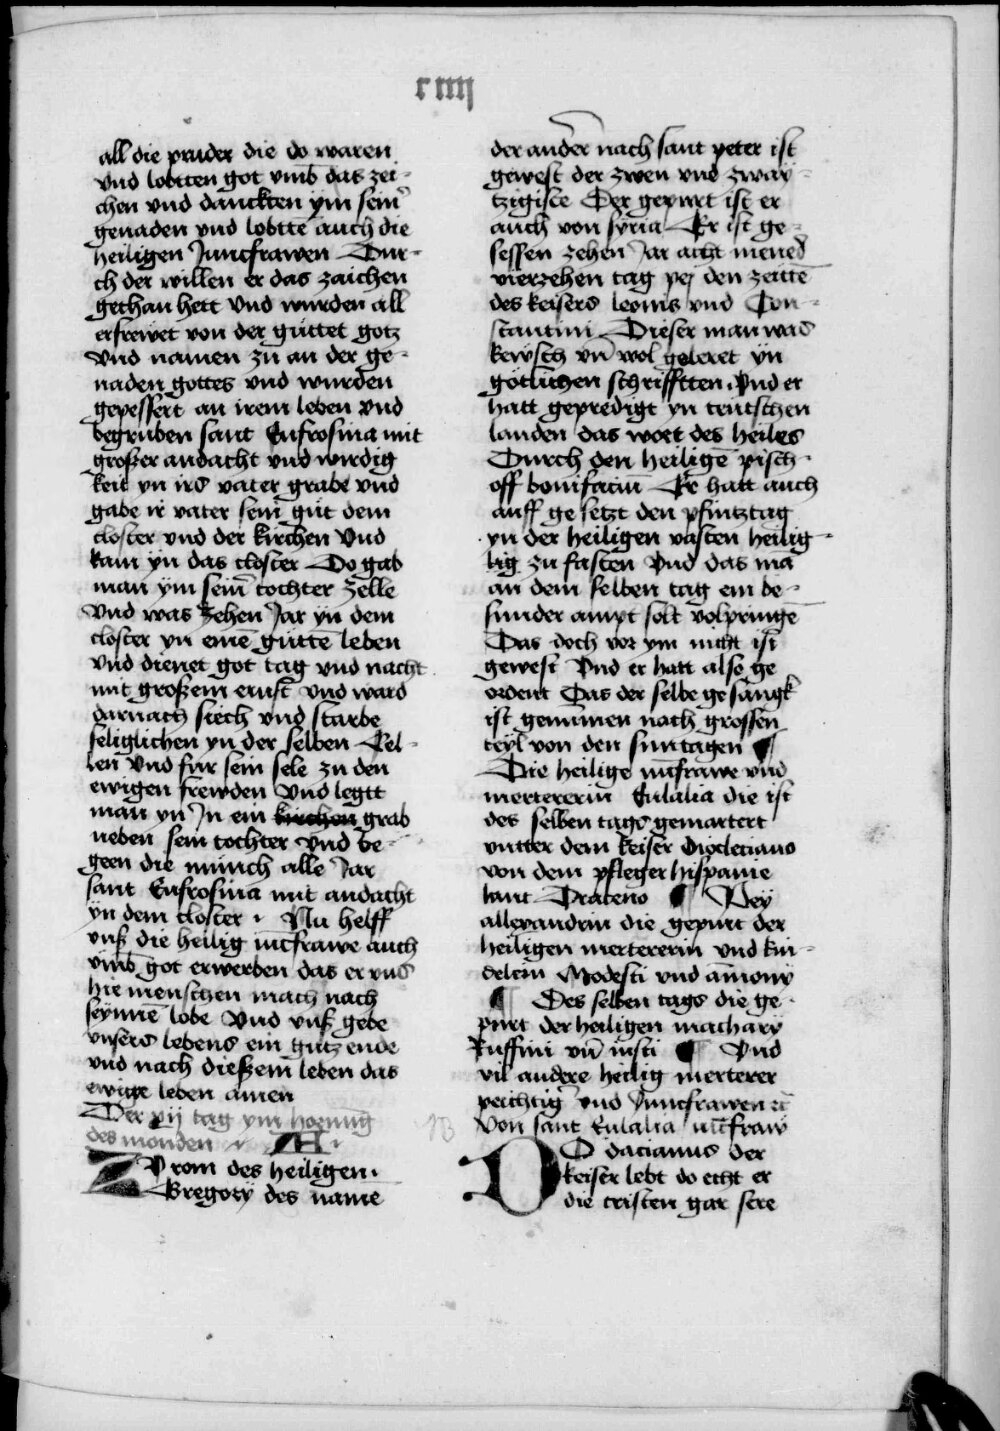 r iiij
all die pruder die do waren
vnd lobtten got vmb das zei-
chen vnd danckten ym sein̄
genaden vnd lobttē auch die
heiligen Juncfrawen Dur-
ch der willen er das zaichen
gethan hett Vnd wurden all
erfrewet von der guttet gotz
Vnd namen zu an der ge-
naden gottes vnd wurden
gepessert an irem leben Vnd
begruben sant Eufrosina mit
großer andacht vnd wirdig
keit yn irs vater grabe vnd
gabe ir vater sein gut dem
closter vnd der kirchen Vnd
kam yn das closter Do gab
man ym sein̄ tochter zelle
Vnd was zehen Jar yn dem
closter yn einē guttē leben
Vnd dienet got tag vnd nacht
mit großem ernst Vnd ward
darnach siech vnd starbe
seliglichen yn der selben Cel-
len Vnd fur sein sele zu den
ewigen frewden Vnd legtt
man yn Jn ein kirchen grab
neben sein tochter Vnd be-
geen die munch alle Jar
sant Eufrosina mit andacht
yn dem closter Nu helff
vnß die heilig iūcfrawe auch
vmb got erwerben das er vns
hie menschen mach nach
seynnē lobe Vnd vnß gebe
vnsers lebens ein gutz ende
vnd nach dießem leben das
ewige leben amen
Der xij tag ym hornūg
des monden A
Z Prom des heiligen
Gregory des namē
der ander nach sant peter ist
gewest der zwen vnd zway-
tzigiste Der gepurt ist er
auch von syria Er ist ge-
sessen zehen Jar acht mened
vierzehen tag pej den zeittē
des keisers leonis vnd Con-
stantini Dieser man was
kewsch vn̄ wol geleret yn
gotlichen schrifftten Vnd er
hatt gepredigt yn teutschen
landen das wort des heiles
Durch den heiligē pisch-
off bonifaciū Er hatt auch
auff gesetzt den pfintztag
yn der heiligen vasten heilig-
lig zu fasten Vnd das mā
an dem selben tag ein be-
sunder ampt solt volpringē
Das doch vor ym nicht ist
gewest Vnd er hatt also ge
ordent Das der selbe gesangk
ist genumen nach grossen
teyl von den suntagen ¶
Die heilige iūcfrawe vnd
mertererin Eulalia die ist
des selben tags gemartert
vntter dem keiser Diocleciano
von dem pfleger hispanie
lant Draceno ¶ Pey
allexandrin die gepurt der
heiligen mertererin vnd kin-
delein Modesti vnd am̄ony
¶ Des selben tags die ge-
purt der heiligen machary
Ruffini vn̄ iusti ¶ Vnd
vil andere heilig merterer
peichtig vnd Juncfrawen
Von sant Eulalia iūcfraw
DO dacianus der
keiser lebt do echt er
die cristen gar sere